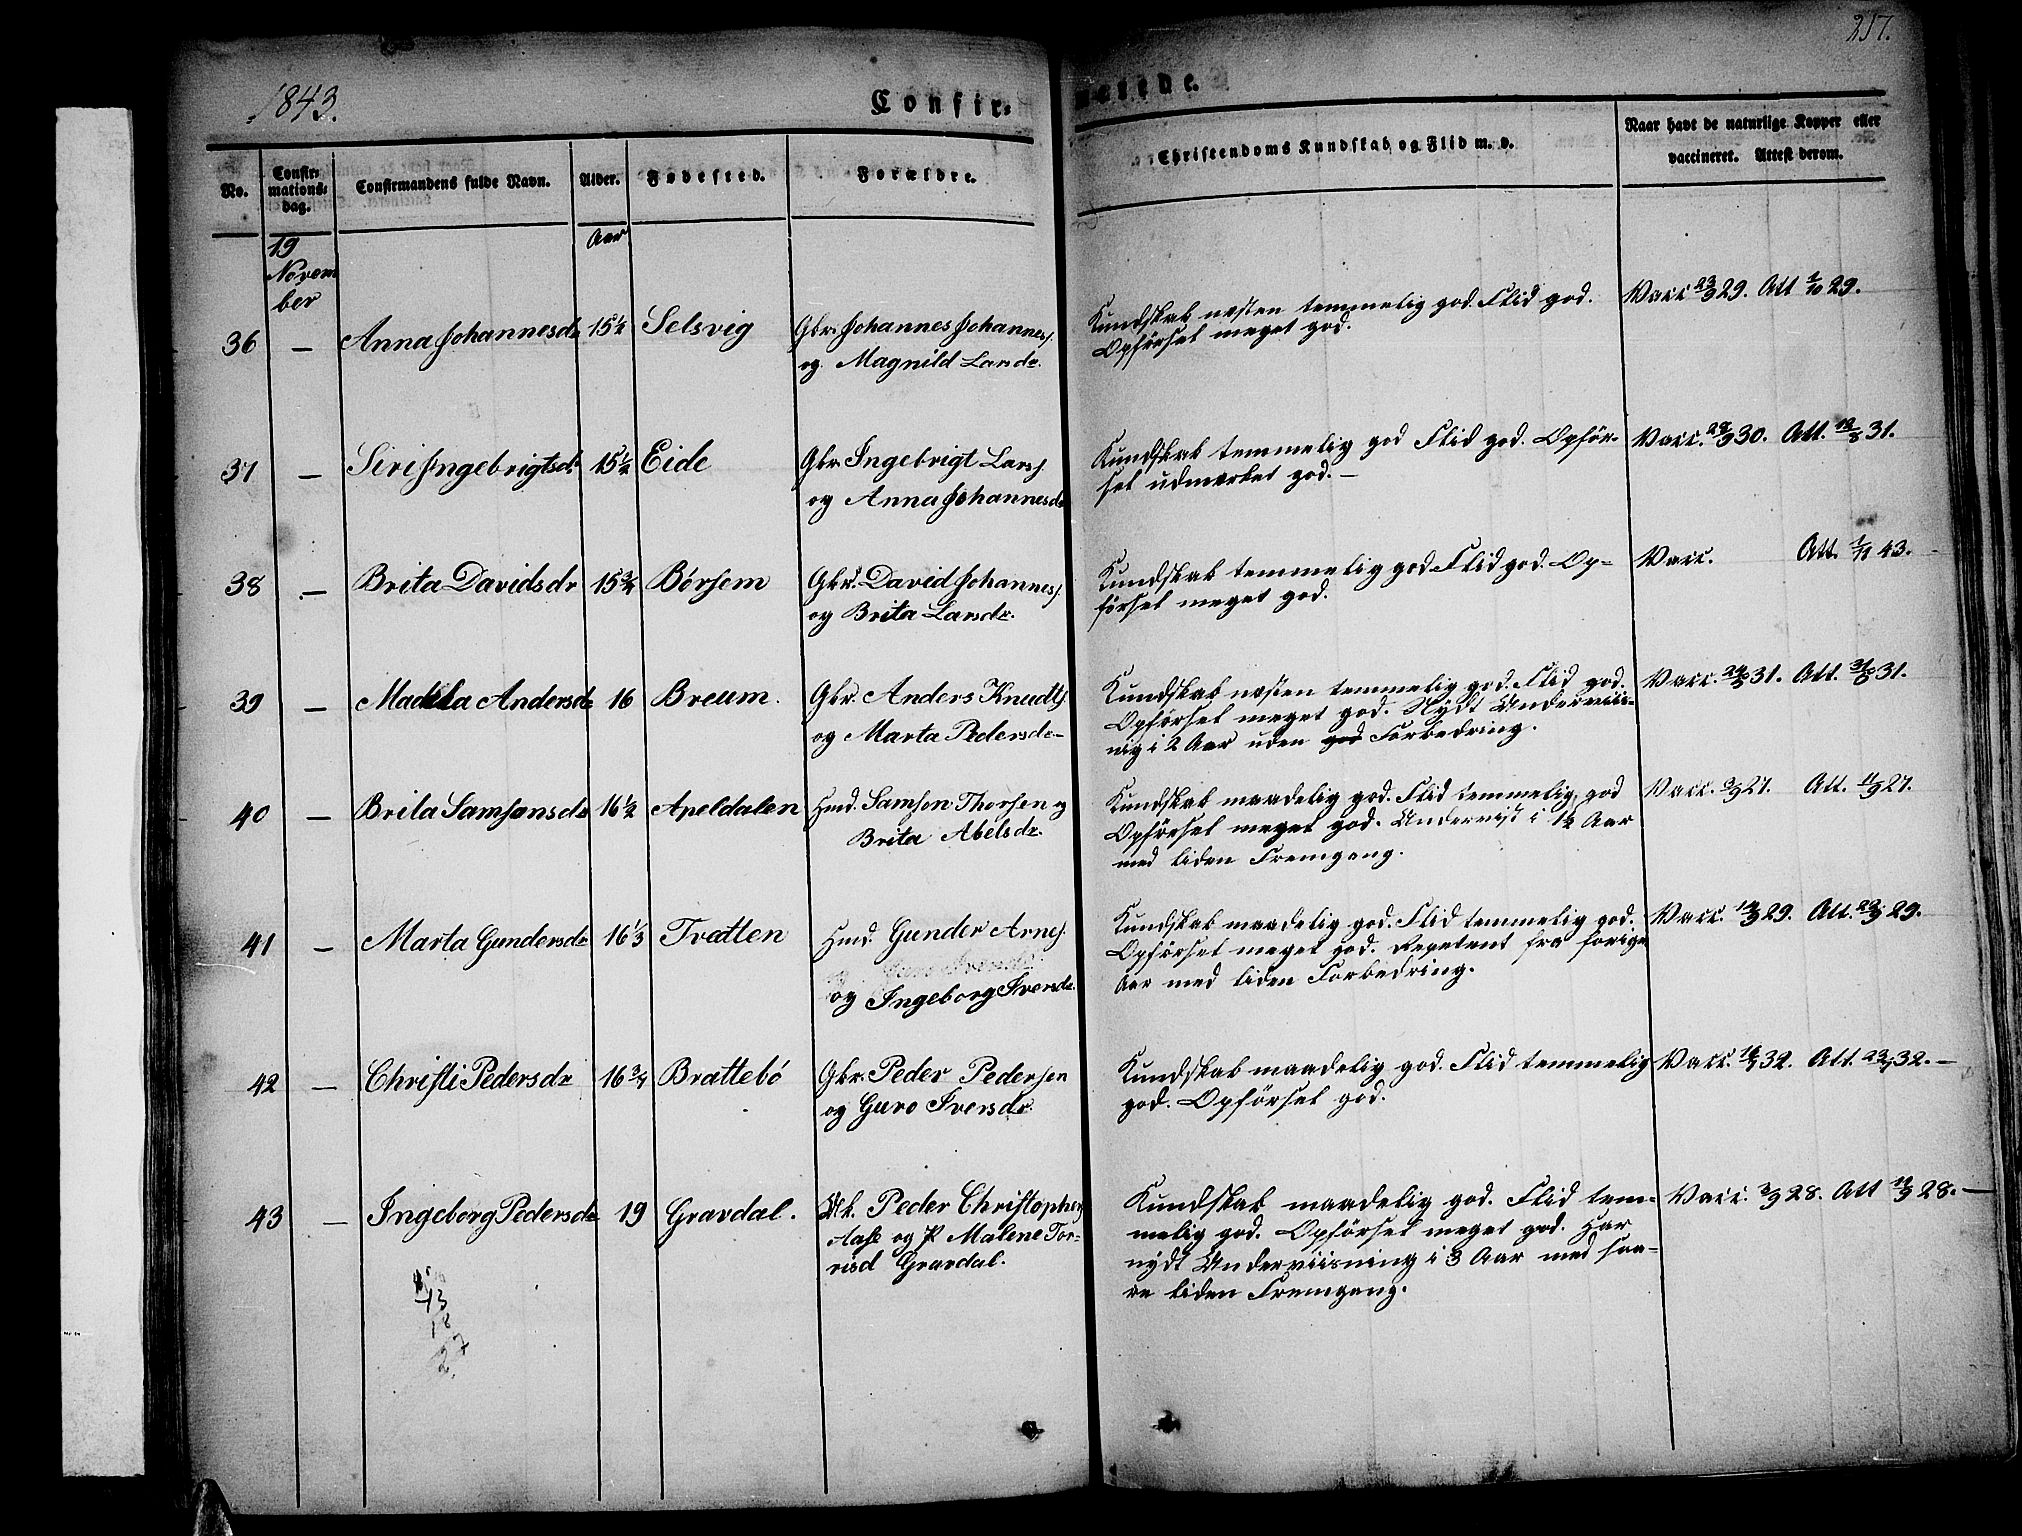 217.
1843.
Confirmerede.
No.
Confirmations-dag.
Confirmandens fulde Navn.
Alder.
Fødested.
Forældre.
Christendoms Kundskab og Flid m. v.
Naar havt de naturlige Kopper eller vaccineret. Attest derom.
19 November
Aar
36 — Anna Johannesdr 15½ Selsvig Gbr. Johannes Johannes.
og Magnild Larsdr.
Kundskab næsten temmelig god. Flid god.
Opförsel meget god.
Vacc 23/9 29. Att 1/10 29.
37 — Siri Ingebrigtsdr 15½ Eide Gbr Ingebrigt Lars.
og Anna Johannesdr
Kundskab temmelig god Flid god. Opför-
sel udmærket god. —
Vacc. 29/9 30. Att. 12/8 31.
38 — Brita Davidsdr 15¾ Börsem Gbr. David Johannes.
og Brita Larsdr.
Kundskab temmelig god Flid god. Op-
försel meget god.
Vacc. Att. 1/11 43.
39 — Madela Andersdr 16 Breum. Gbr. Anders Knudts.
og Marta Pedersdr
Kundskab næsten temmelig god. Flid god.
Opförsel meget god. Nydt Underviis-
nig i 2 Aar uden god Forbedring.
Vacc. 24/8 31. Att. 31/8 31.
40 — Brita Samsonsdr 16½ Apeldalen Hmd. Samson Thorsen og
Brita Abelsdr.
Kundskab maadelig god. Flid temmelig god
Opförsel meget god. Underviist i 1½ Aar
med liden Fremgang.
Vacc. 3/9 27. Att. 11/9 27.
41 — Marta Gundersdr 16⅓ Tvætten Hmd. Gunder Arnes.
og Ingeborg Iversdr.
Kundskab maadelig god. Flid temmelig god.
Opförsel meget god. Repetent fra forige
Aar med liden Forbedring.
Vacc. 14/9 29. Att. 22/9 29.
42 — Christi Pedersdr 16¾ Brattebö Gbr. Peder Pedersen
og Guro Iversdr.
Kundskab maadelig god. Flid temmelig
god. Opförsel god.
Vacc. 32. Att. 32. —
43 — Ingeborg Pedersdr 19 Gravdal. Uk. Peder Christophers.
Aase og P Malene Tor-
risd Gravdal.
Kundskab maadelig god. Flid tem-
melig god. Opförsel meget god. Har
nydt Underviisning i 3 Aar med saa-
re liden Fremgang.
Vacc. 2/9 28. Att 12/9 28. —
43
18
27